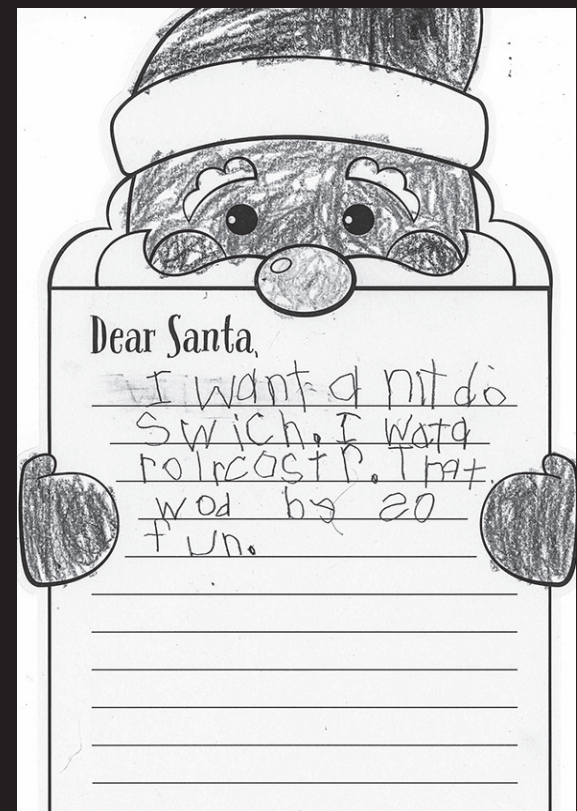 Dear Santa,
I want a nitdo
Swich. I wata
rolrcostr. That
wod be so
fun.